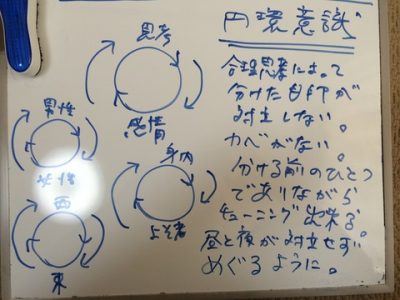 円環意識
思考
感情
男性
女性
身内
よそ者
西
東
合理思考によって
分けた自他が
対立しない。
カベがない。
分ける前のひとつ
でありながら
チューニング出来る。
昼と夜が対立せず
めぐるように。